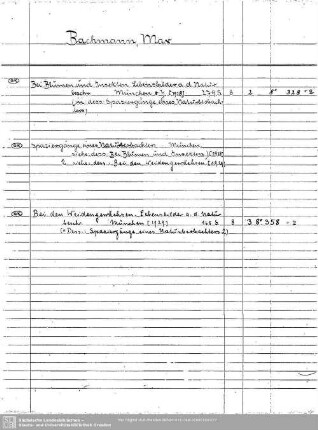 Bachmann, Max
Bei Blumen und Insekten. Lebensbilder a. d. Natur
beschr. München o. J. [1918]. 279 S. 8 2 8° 338 - 2
(in dess. Spaziergänge eines Naturbeobach-
ters)
Spaziergänge eines Naturbeobachters. München
siehe dess. Bei Blumen und Insekten [1918]
2. siehe dess. Bei den Weidengerdehren [1921]
Bei den Weidengerdehren. Lebensbilder a. d. Natur
beschr. München [1921] 168 S. 8 3 8° 358 - 2
(= Ders., Spaziergänge eines Naturbeobachters 2)